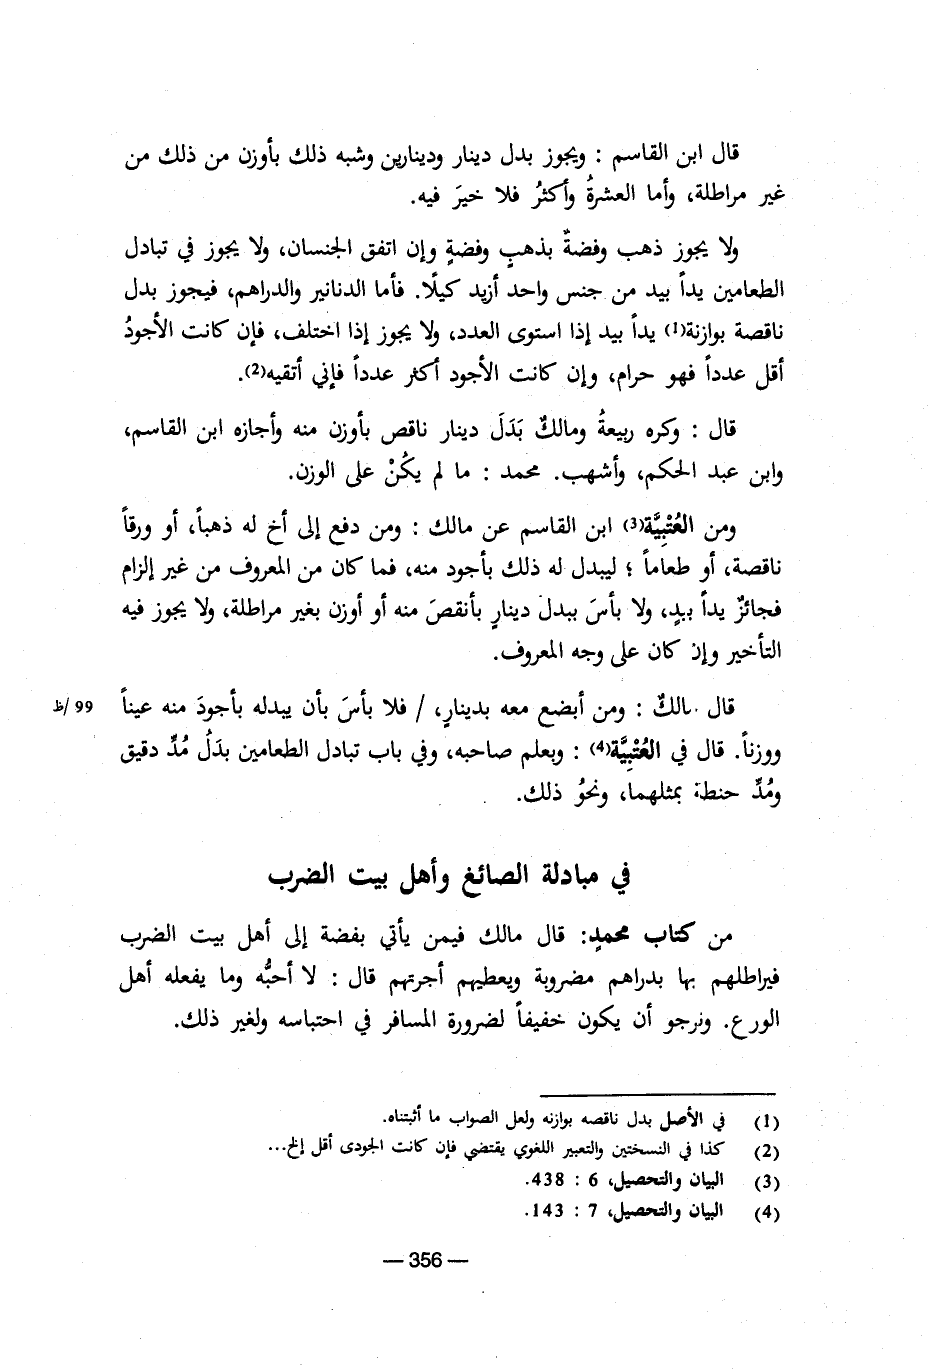 قال ابن القاسم : ويجوز بدل دينار ودينارين وشبه ذلك بأوزن من ذلك من
غير مراطلة، وأما العشرةُ وأكثرُ فلا خيرَ فيه.
ولا يجوز ذهب وفضةٌ بذهبٍ وفضةٍ وإن اتفق الجنسان، ولا يجوز في تبادل
الطعامين يداً بيد من جنس واحد أزيد كيلًا. فأما الدنانير والدراهم، فيجوز بدل
ناقصة بوازنة(1) يداً بيد إذا استوى العدد، ولا يجوز إذا اختلف، فإن كانت الأجودُ
أقل عدداً فهو حرام، وإن كانت الأجود أكثر عدداً فإني أتقيه(2).
قال : وكره ربيعةُ ومالكٌ بَدَلَ دينار ناقص بأوزن منه وأجازه ابن القاسم،
وابن عبد الحكم، وأشهب. محمد : ما لم يكُنْ على الوزن.
ومن العُتْبِيَّة(3) ابن القاسم عن مالك : ومن دفع إلى أخ له ذهباً، أو ورقاً
ناقصة، أو طعاماً ؛ ليبدل له ذلك بأجود منه، فما كان من المعروف من غير إلزام
فجائزٌ يداً بيدٍ، ولا بأسَ ببدل دينارٍ بأنقصَ منه أو أوزن بغير مراطلة، ولا يجوز فيه
التأخير وإن كان على وجه المعروف.
قال مالكٌ : ومن أبضع معه بدينارٍ، / فلا بأسَ بأن يبدله بأجودَ منه عيناً 99/ظ
ووزناً. قال في العُتْبِيَّة(4) : ويعلم صاحبه، وفي باب تبادل الطعامين بدَلُ مُدِّ دقيق
ومُدِّ حنطة بمثلهما، ونحوُ ذلك.
في مبادلة الصائغ وأهل بيت الضرب
من كتاب محمدٍ: قال مالك فيمن يأتي بفضة إلى أهل بيت الضرب
فيراطلهم بها بدراهم مضروبة ويعطيهم أجرتهم قال : لا أحبُّه وما يفعله أهل
الورع. ونرجو أن يكون خفيفاً لضرورة المسافر في احتباسه ولغير ذلك.
(1) في الأصل بدل ناقصه بوازنه ولعل الصواب ما أثبتناه.
(2) كذا في النسختين والتعبير اللغوي يقتضي فإن كانت الجودى أقل إلخ...
(3) البيان والتحصيل، 6 : 438.
(4) البيان والتحصيل، 7 : 143.
— 356 —